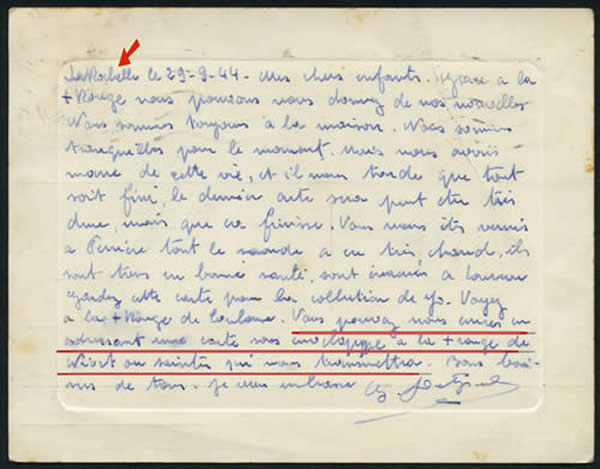 La Rochelle le 29-9-44 - Mes chers enfants. grace a la
+ Rouge nous pouvons vous donner de nos nouvelles
Nous sommes toujours a la maison. Nous sommes
tranquilles pour le moment. Mais nous avons
marre de cette vie, et il nous tarde que tout
soit fini, le dernier acte sera peut etre très
dure, mais que ca finisse. Vous nous
a tout le monde a eu très chaud, ils
sont tous en bonne santé, sont a
gardez cette carte pour la collection de Jo. Voyez
a la + Rouge de Toulouse. Vous pouvez nous ecrire en
adressant une carte sous enveloppe a la + rouge de
Niort ou Saintes qui nous transmettra. Bons bai-
sers de tous. Je vous embrasse